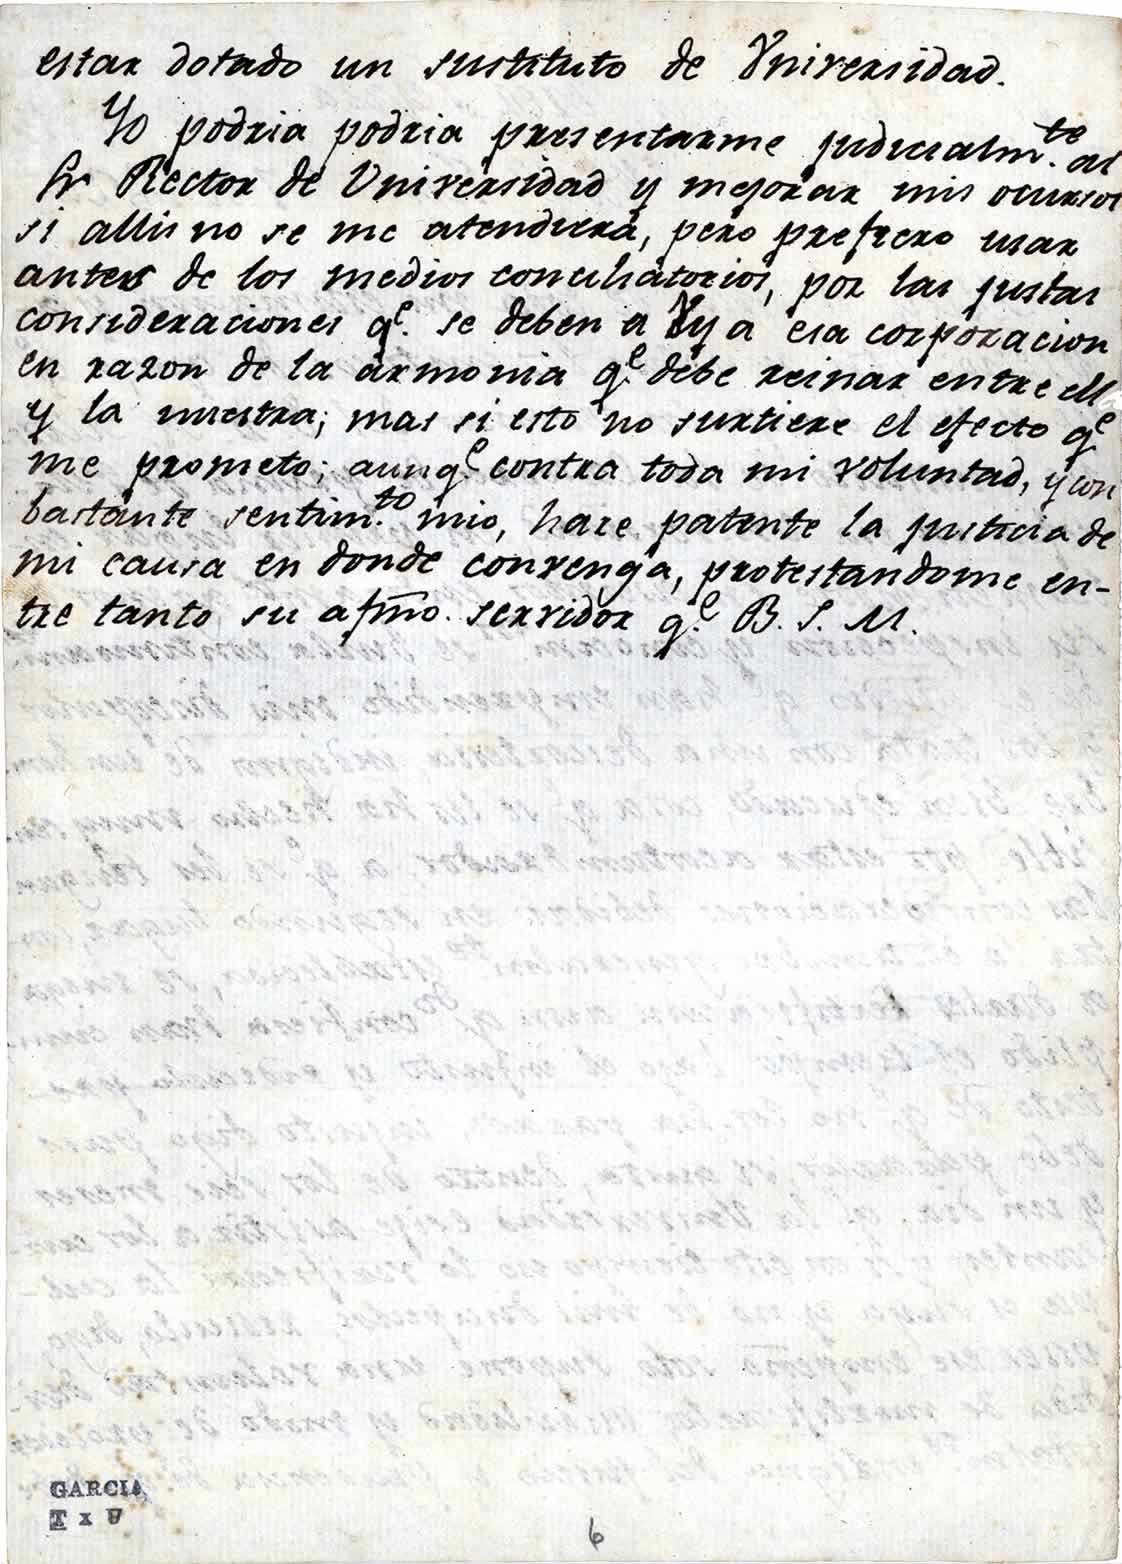 estar dotado un sustituto de Vniversidad.
Yo podria podria presentarme judicialm.te al
Sr Rector de Vniversidad y mejorar mis ocursos
si alli no se me atendiera, pero prefiero usar
antes de los medios conciliatorios, por las justas
consideraciones q.e se deben a V y a esa corporacion
en razon de la armonia q.e debe reinar entre ell
y la nuestra; mas si esto no surtiere el efecto q.e
me prometo; aunq.e contra toda mi voluntad, y con
bastante sentim.to mio, hare patente la justicia de
mi causa en donde convenga, protestandome en-
tre tanto su afmo. servidor q.e B. S. M.
GARCIA
6